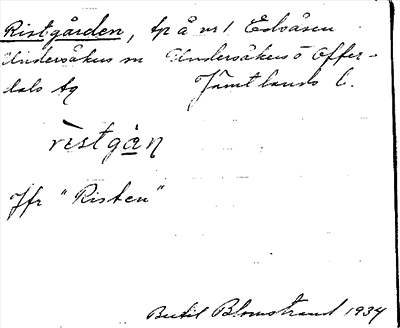 Ristgården, tp å nr 1 Edsåsen
Undersåkers sn Undersåkers o Offer-
dals tg Jämtlands l.
rìstgàṇ
Jfr "Risten"
Bertil Blomstrand 1934